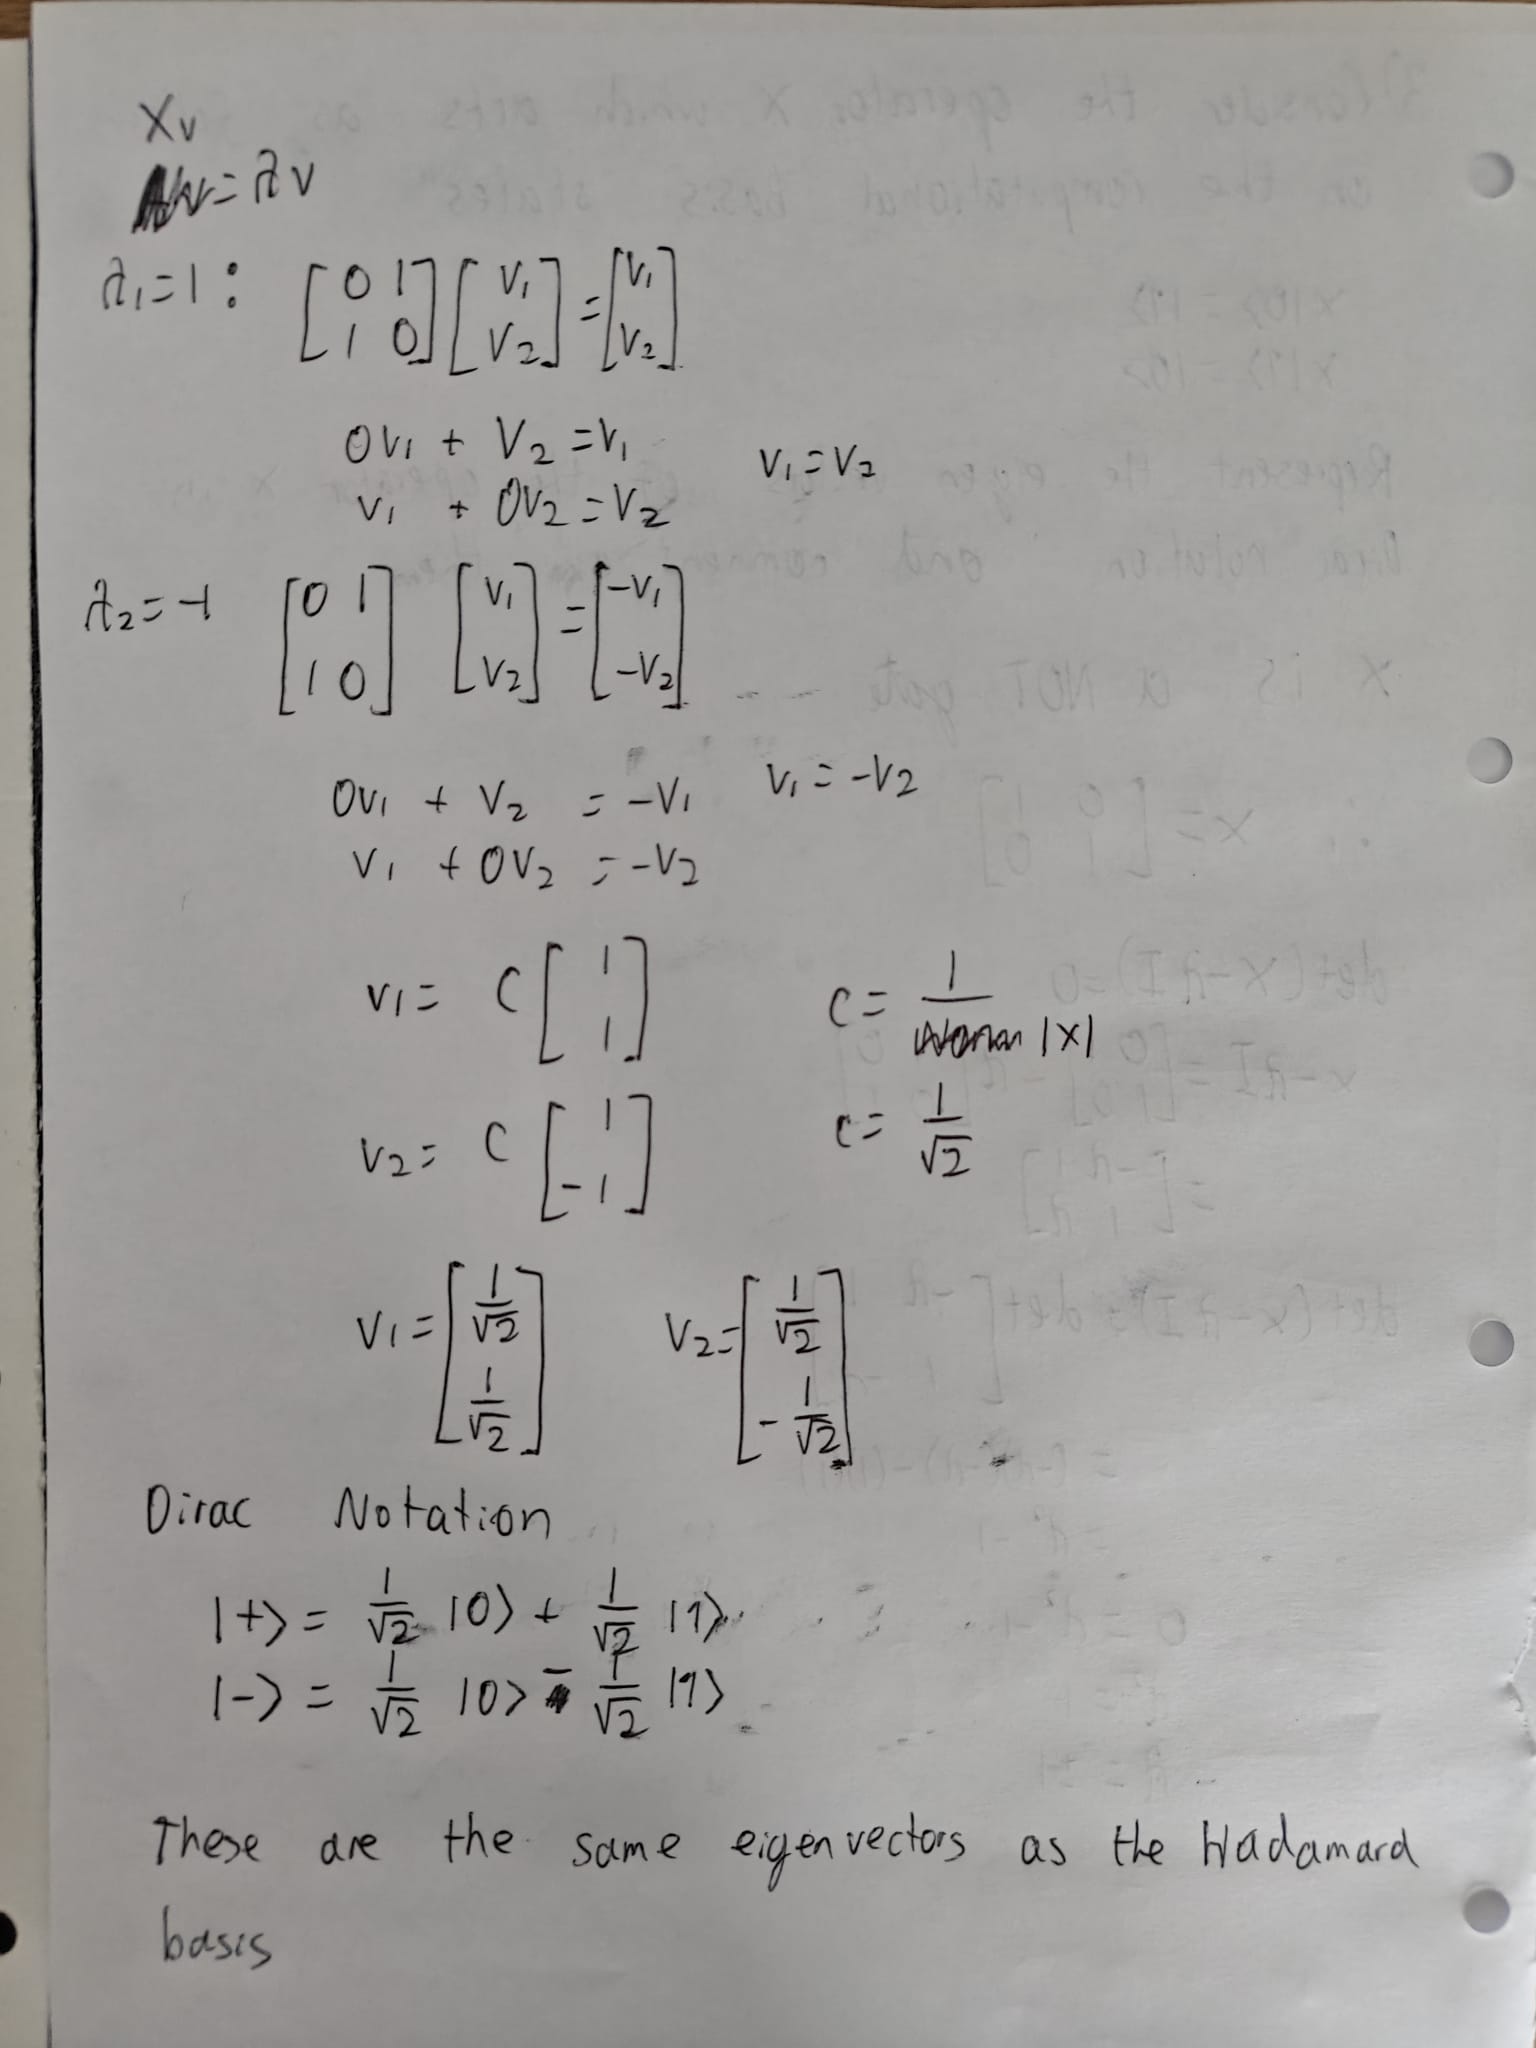 Xv
= λv
λ₁=1: [0 1; 1 0] [v₁; v₂] = [v₁; v₂]
0v₁ + v₂ = v₁
v₁ = v₂
v₁ + 0v₂ = v₂
λ₂=-1 [0 1; 1 0] [v₁; v₂] = [-v₁; -v₂]
0v₁ + v₂ = -v₁
v₁ = -v₂
v₁ + 0v₂ = -v₂
v₁ = c [1; 1]
c = 1/|x|
v₂ = c [1; -1]
c = 1/√2
v₁ = [1/√2; 1/√2]
v₂ = [1/√2; -1/√2]
Dirac Notation
|+> = 1/√2 |0> + 1/√2 |1>
|-> = 1/√2 |0> - 1/√2 |1>
These are the same eigenvectors as the Hadamard
basis